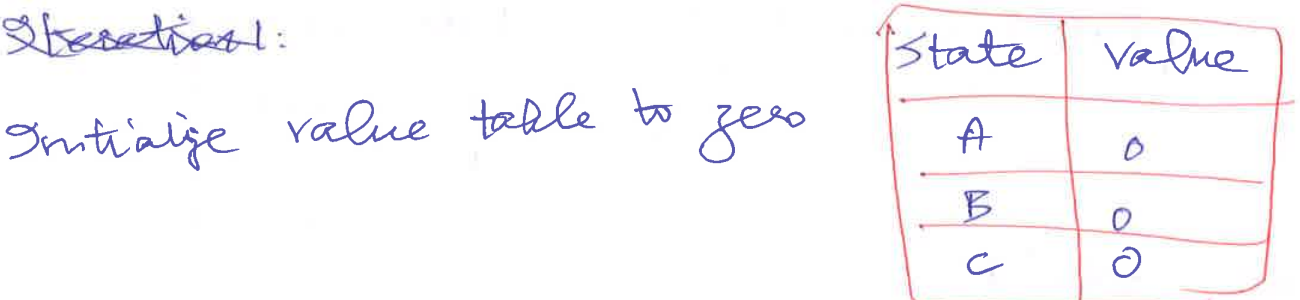 Iteration 1:
Initialize value table to zero
State value
A 0
B 0
C 0